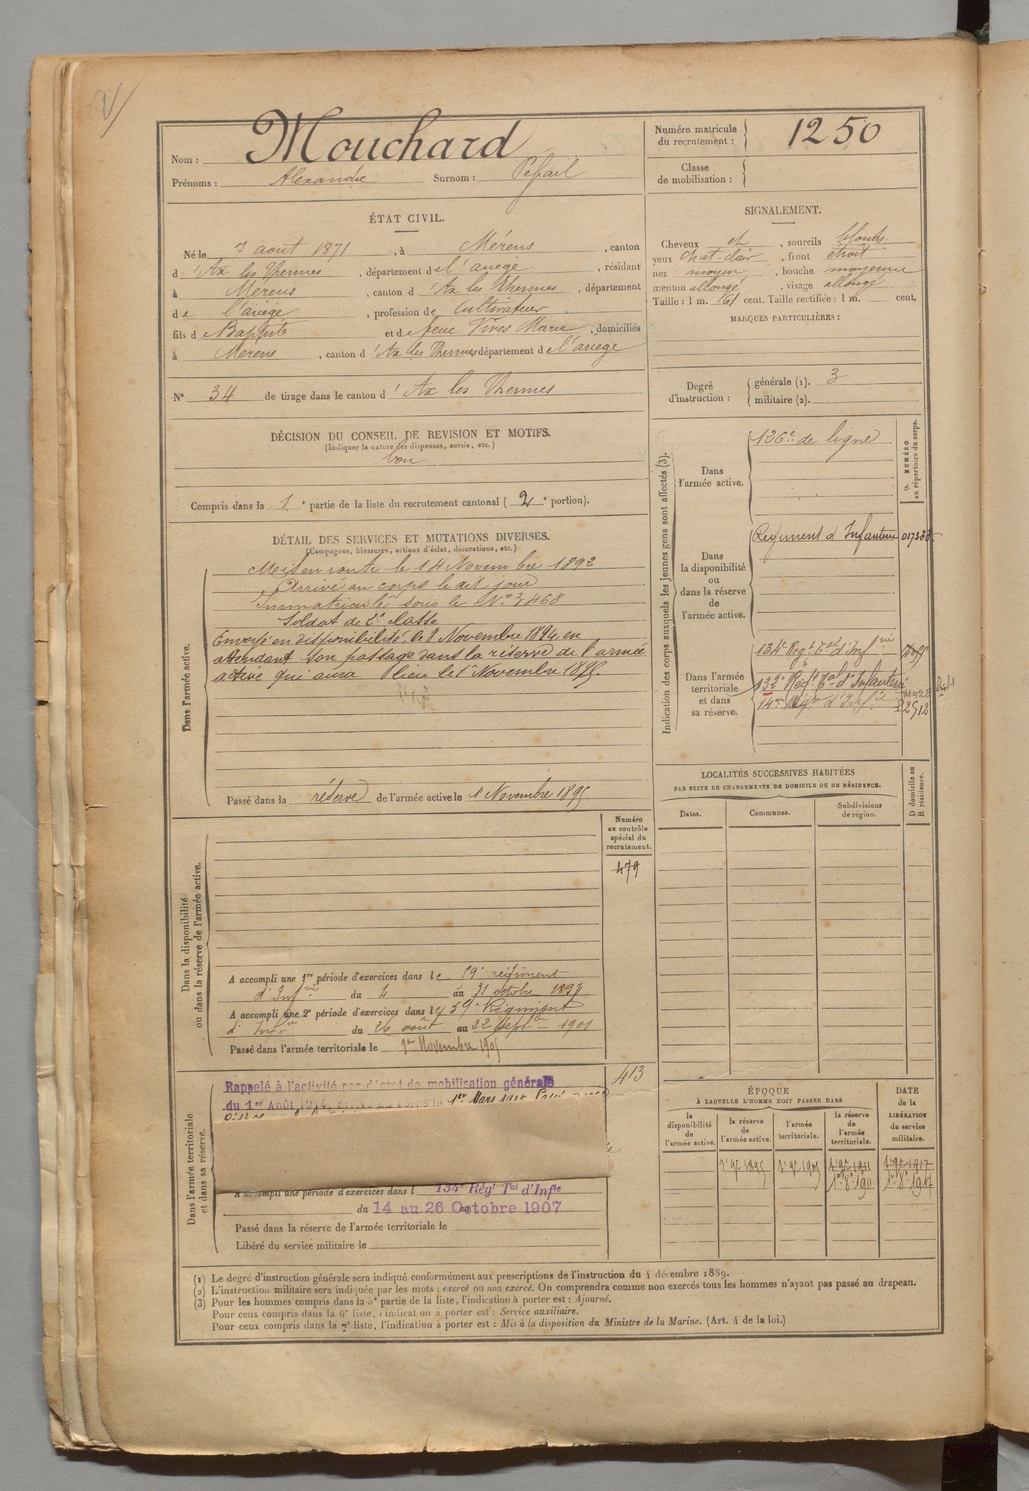 Nom : Mouchard
Prénoms : Alexandre Surnom : Pefail
Numéro matricule du recrutement : 1250
Classe de mobilisation :
ÉTAT CIVIL.
Né le 7 août 1871, à Mérens, canton
d'Ax les Thermes, département de l'ariège, résidant
à Mérens, canton d'Ax les Thermes, département
de l'ariège, profession de Cultivateur
fils de Baptiste et de feue Vives Marie, domiciliés
à Mérens, canton d'Ax les Thermes département de l'ariège
N° 34 de tirage dans le canton d'Ax les Thermes
DÉCISION DU CONSEIL DE REVISION ET MOTIFS.
(Indiquer la nature des dispenses, sursis, etc.)
bon
Compris dans la 1e partie de la liste du recrutement cantonal (2e portion).
SIGNALEMENT.
Cheveux et, sourcils blonds
yeux chat-clair, front étroit
nez moyen, bouche moyenne
menton allongé, visage allongé
Taille : 1 m. 61 cent. Taille rectifiée : 1 m. cent.
MARQUES PARTICULIÈRES :
Degré d'instruction : générale (1). 3
militaire (2).
DÉTAIL DES SERVICES ET MUTATIONS DIVERSES.
(Campagnes, blessures, actions d'éclat, décorations, etc.)
Dans l'armée active.
Mis en route le 14 Novembre 1892
Arrivé au corps le dit jour
Immatriculé sous le N° 3468
Soldat de 2e classe
Envoyé en disponibilité le 8 Novembre 1894 en
attendant son passage dans la réserve de l'armée
active qui aura lieu le 1er Novembre 1895.
Passé dans la réserve de l'armée active le 1 Novembre 1895
Indication des corps auxquels les jeunes gens sont affectés (3).
NUMÉRO au répertoire du corps.
Dans l'armée active.
126e de ligne
Dans la disponibilité ou dans la réserve de l'armée active.
Régiment d'Infanterie
Dans l'armée territoriale et dans sa réserve.
134e Régt Tal d'Inf rie
132e Régt Tal d'Infanterie
LOCALITÉS SUCCESSIVES HABITÉES
PAR SUITE DE CHANGEMENTS DE DOMICILE OU DE RÉSIDENCE.
Dates. Communes. Subdivisions de région. D domicile ou R résidence.
Dans la disponibilité ou dans la réserve de l'armée active.
Numéro au contrôle spécial du recrutement.
479
A accompli une 1re période d'exercices dans le 59e régiment
d'Inf rie du 4 au 31 octobre 1897
A accompli une 2e période d'exercices dans le 59e Régiment
d'Inf rie du 26 août au 22 Sept 1901
Passé dans l'armée territoriale le 1er Novembre 1905
Dans l'armée territoriale et dans sa réserve.
413
Rappelé à l'activité par décret de mobilisation générale
du 1er Août 1914, 1er Mars 1915
A accompli une période d'exercices dans l 134e Régt Tal d'Infie
du 14 au 26 Octobre 1907
Passé dans la réserve de l'armée territoriale le
Libéré du service militaire le
ÉPOQUE
À LAQUELLE L'HOMME DOIT PASSER DANS
la disponibilité de l'armée active.
la réserve de l'armée active.
l'armée territoriale.
la réserve de l'armée territoriale.
DATE de la LIBÉRATION du service militaire.
1er 9bre 1895 1er 9bre 1905 1er 9bre 1911 1er 9bre 1917
1er 8bre 1911 1er 8bre 1917
(1) Le degré d'instruction générale sera indiqué conformément aux prescriptions de l'instruction du 4 décembre 1889.
(2) L'instruction militaire sera indiquée par les mots : exercé ou non exercé. On comprendra comme non exercés tous les hommes n'ayant pas passé au drapeau.
(3) Pour les hommes compris dans la 5e partie de la liste, l'indication à porter est : Ajourné.
Pour ceux compris dans la 6e liste, l'indication à porter est : Service auxiliaire.
Pour ceux compris dans la 7e liste, l'indication à porter est : Mis à la disposition du Ministre de la Marine. (Art. 4 de la loi.)